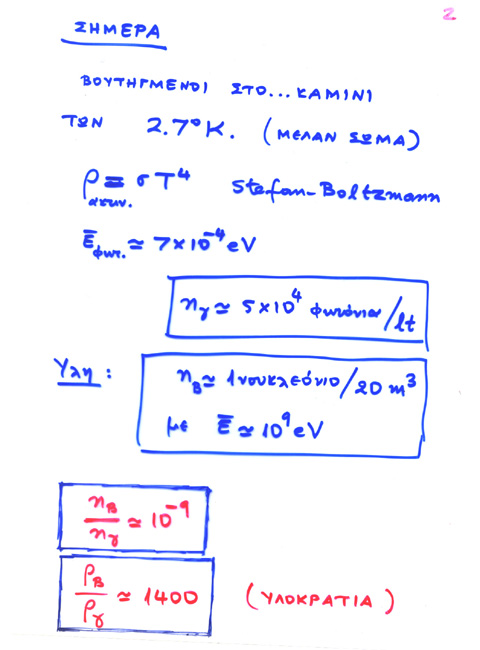 2
ΣΗΜΕΡΑ
ΒΟΥΤΗΓΜΕΝΟΙ ΣΤΟ... ΚΑΜΙΝΙ
ΤΩΝ 2.7°K. (ΜΕΛΑΝ ΣΩΜΑ)
ρ_ακτιν. = σT⁴ Stefan-Boltzmann
Ē_φωτ. ≃ 7×10⁻⁴ eV
n_γ ≃ 5×10⁴ φωτόνια/lt
Υλη :
n_B ≃ 1 νουκλεόνιο/20 m³
με Ē ≃ 10⁹ eV
n_B/n_γ ≃ 10⁻⁹
ρ_B/ρ_γ ≃ 1400 (ΥΛΟΚΡΑΤΙΑ)